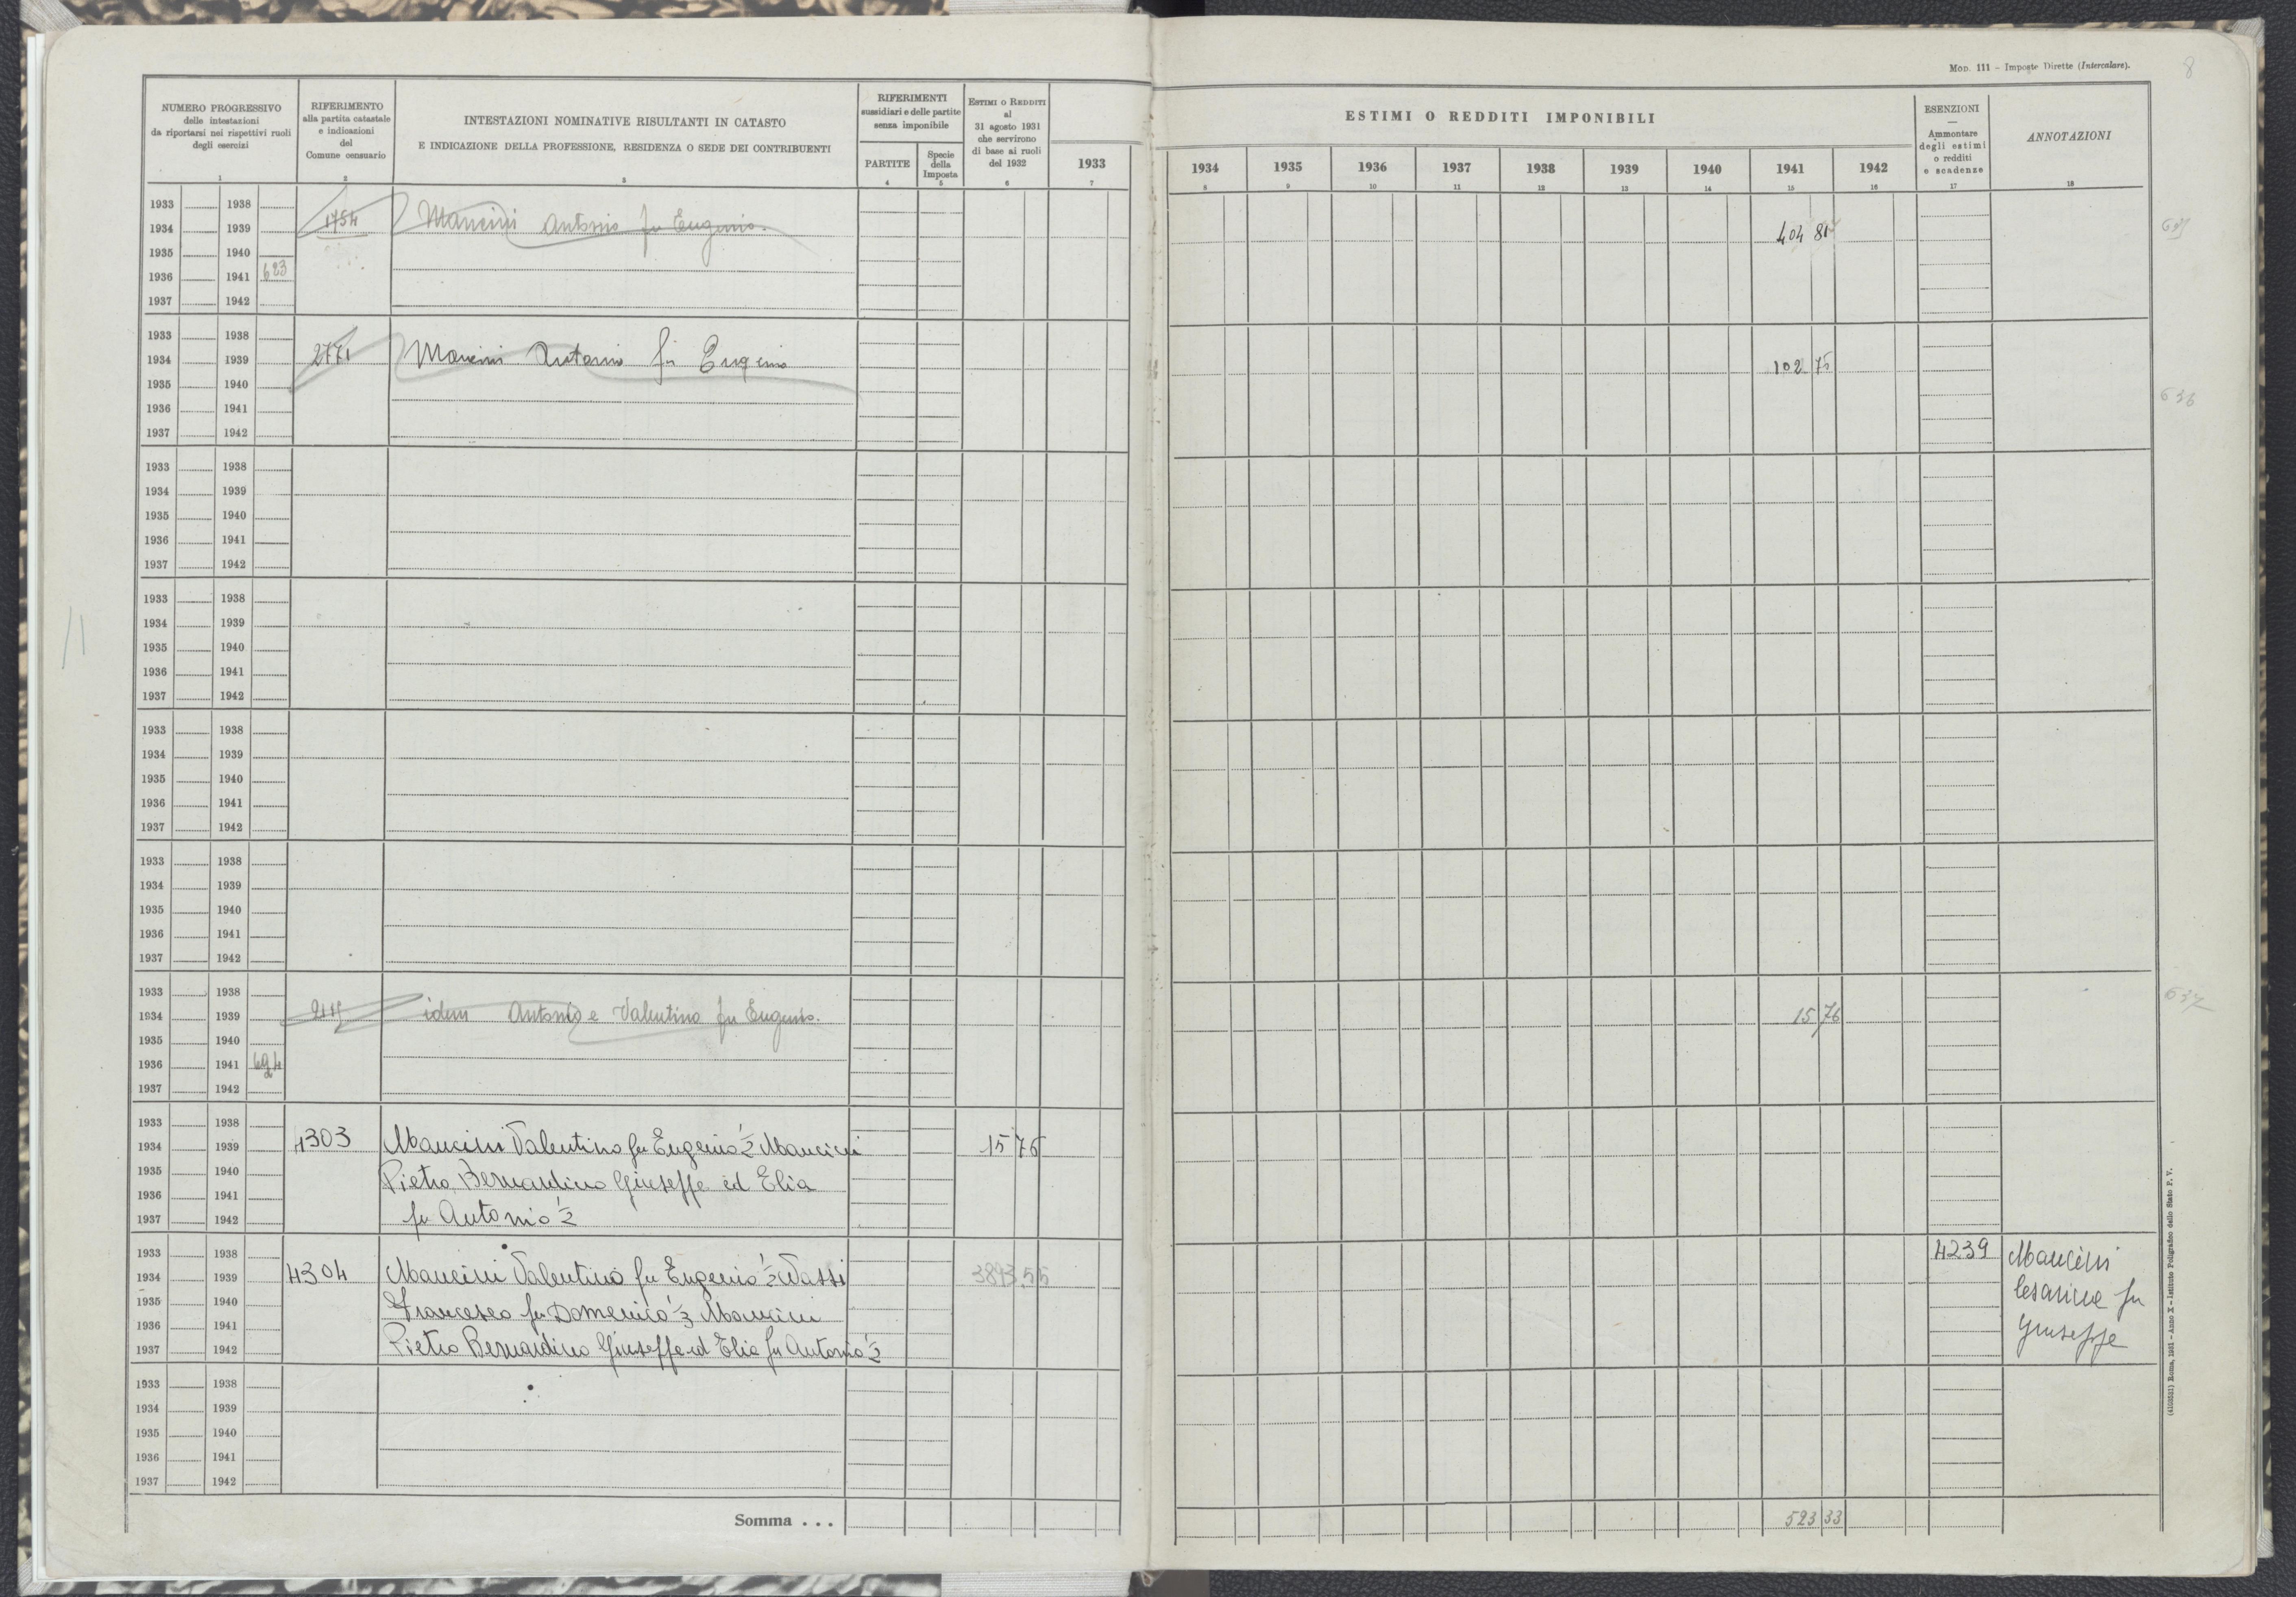 Mod. 111 – Imposte Dirette (Intercalare).
8
NUMERO PROGRESSIVO
delle intestazioni
da riportarsi nei rispettivi ruoli
degli esercizi
1
RIFERIMENTO
alla partita catastale
e indicazioni
del
Comune censuario
2
INTESTAZIONI NOMINATIVE RISULTANTI IN CATASTO
E INDICAZIONE DELLA PROFESSIONE, RESIDENZA O SEDE DEI CONTRIBUENTI
3
RIFERIMENTI
sussidiari e delle partite
senza imponibile
PARTITE
4
Specie
della
Imposta
5
Estimi o Redditi
al
31 agosto 1931
che servirono
di base ai ruoli
del 1932
6
1933
7
ESTIMI O REDDITI IMPONIBILI
1934 1935 1936 1937 1938 1939 1940 1941 1942
8 9 10 11 12 13 14 15 16
ESENZIONI
—
Ammontare
degli estimi
o redditi
e scadenze
17
ANNOTAZIONI
18
1933 1938
1934 1939 1754 Mancini Antonio fu Eugenio. 404 81
1935 1940
1936 1941 623
1937 1942
1933 1938
1934 1939 2771 Mancini Antonio fu Eugenio 102 75
1935 1940
636
1936 1941
1937 1942
1933 1938
1934 1939
1935 1940
1936 1941
1937 1942
1933 1938
1934 1939
1935 1940
1936 1941
1937 1942
11
1933 1938
1934 1939
1935 1940
1936 1941
1937 1942
1933 1938
1934 1939
1935 1940
1936 1941
1937 1942
1933 1938
637
1934 1939 idem Antonio e Valentino fu Eugenio. 15 76
1935 1940
1936 1941 694
1937 1942
1933 1938
1934 1939 4303 Mancini Valentino fu Eugenio 1/2 Mancini 15 76
1935 1940 Pietro, Bernardino Giuseppe ed Elia
1936 1941
1937 1942 fu Antonio 1/2
1933 1938 4239 Mancini
1934 1939 4304 Mancini Valentino fu Eugenio 1/3 Tassi 3893,55
1935 1940 Francesco fu Domenico 1/3 Mancini Cesarine fu
1936 1941
1937 1942 Pietro Bernardino Giuseppe ed Elia fu Antonio 1/3 Giuseppe
1933 1938
1934 1939
1935 1940
1936 1941
1937 1942
Somma . . . 523 33
(4103551) Roma, 1931 – Anno X – Istituto Poligrafico dello Stato P. V.